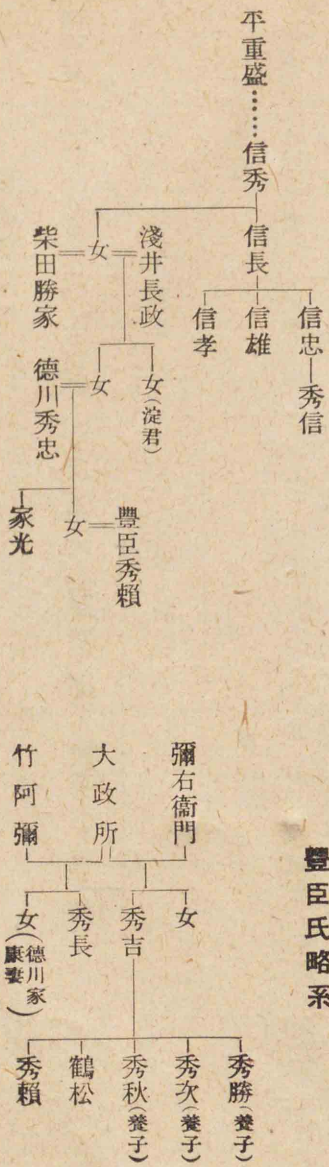 平重盛……信秀
信長
信忠―秀信
信雄
信孝
淺井長政
女
柴田勝家
女(淀君)
女
德川秀忠
豐臣秀賴
女
家光
豐臣氏略系
彌右衞門
大政所
竹阿彌
女
秀吉
秀長
女(德川家康妻)
秀勝(養子)
秀次(養子)
秀秋(養子)
鶴松
秀賴